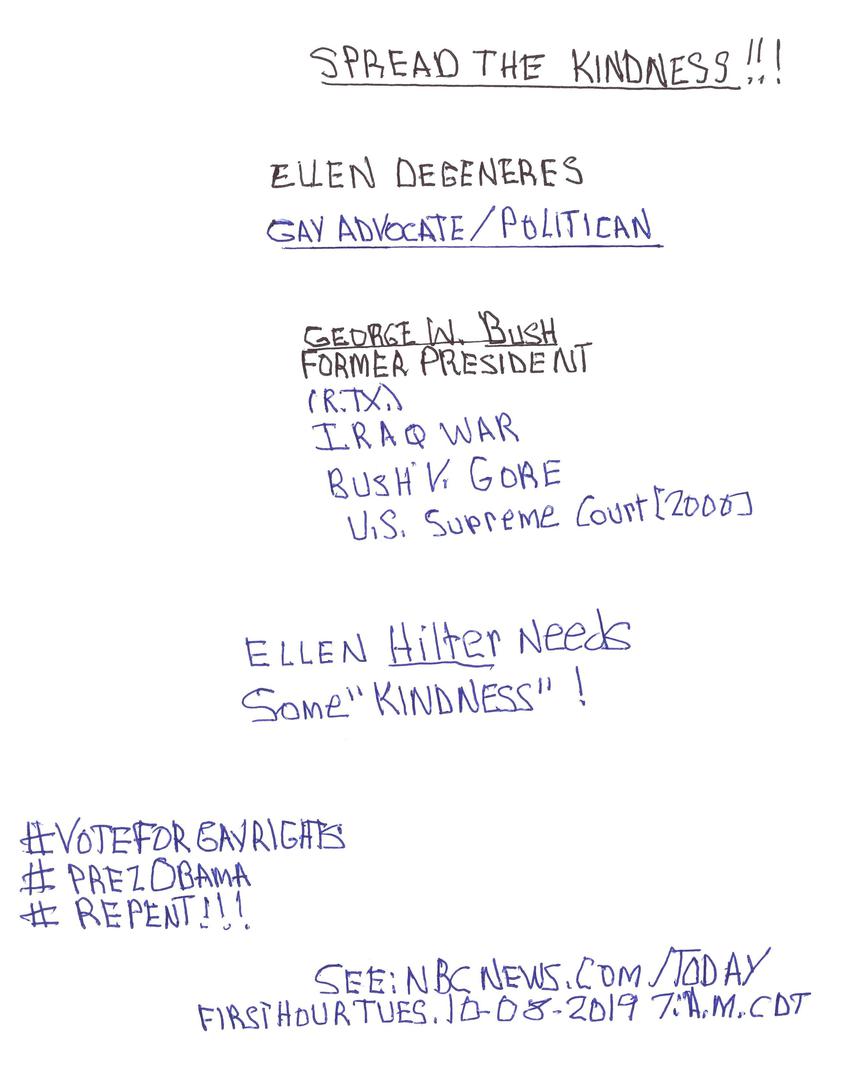 SPREAD THE KINDNESS!!!
ELLEN DEGENERES
GAY ADVOCATE/POLITICAN
GEORGE W. BUSH
FORMER PRESIDENT
(R.TX.)
IRAQ WAR
BUSH V. GORE
U.S. Supreme Court [2000]
ELLEN Hilter Needs
Some "KINDNESS"!
#VOTEFORGAYRIGHTS
# PREZOBAMA
# REPENT!!!
SEE: NBCNEWS.COM/TODAY
FIRST HOUR TUES. 10-08-2019 7:A.M. CDT